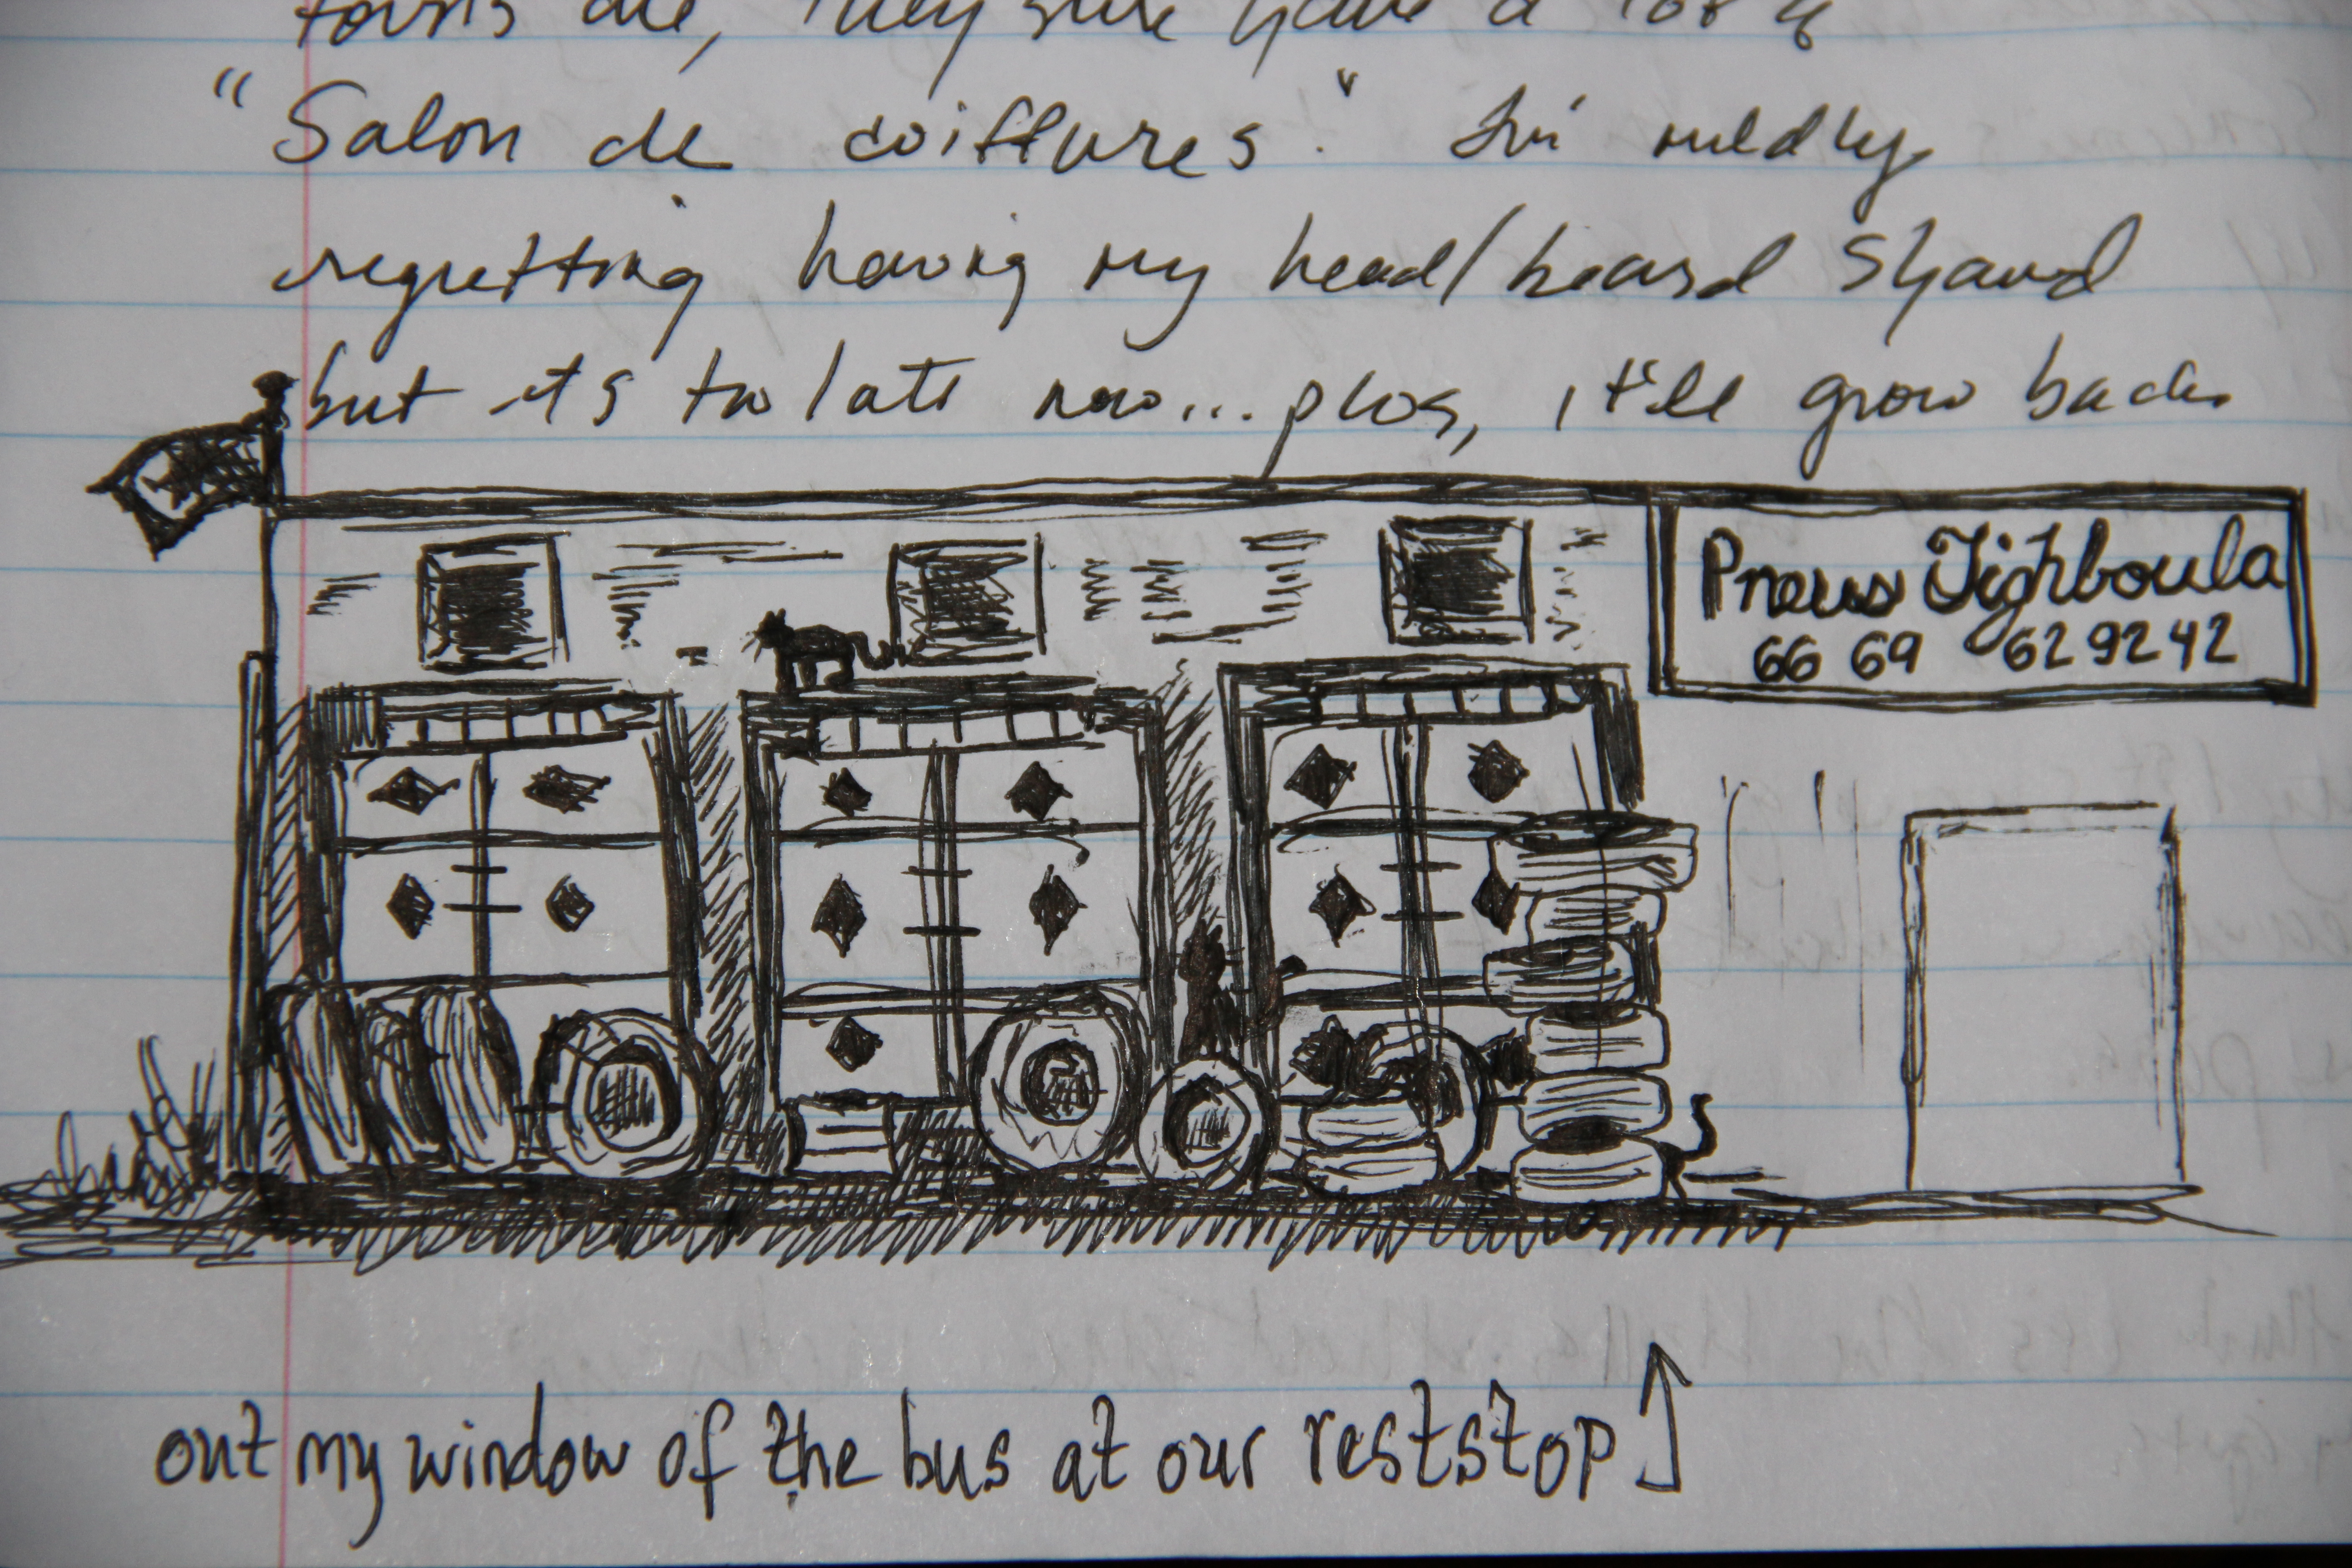 towns are, they sure have a lot of
"Salon de coiffures." I'm mildly
regretting having my head/beard shaved
but its too late now... plus, it'll grow back.
Pneus Tighboula
66 69 629242
out my window of the bus at our reststop